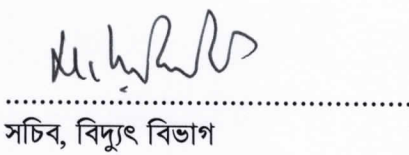 সচিব, বিদ্যুৎ বিভাগ